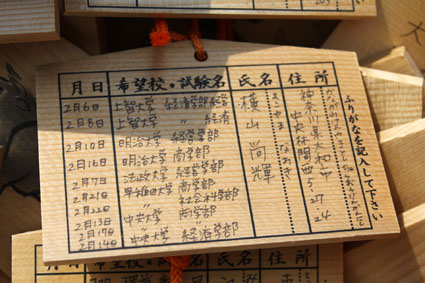 月日 希望校・試験名 氏名 住所
2月6日 上智大学 経済学部経営
2月8日 上智大学 〃 経済
2月10日 明治大学 経営学部
2月16日 明治大学 商学部
2月7日 法政大学 経営学部
2月21日 早稲田大学 商学部
2月22日 〃 社会科学部
2月13日 中央大学 商学部
2月17日
2月14日 中央大学 経済学部
よこやま なおき
横山 尚輝
神奈川県大和市
中央林間西
27 24
ふりがなを記入して下さい
月日 希望校・試験名 氏名 住所